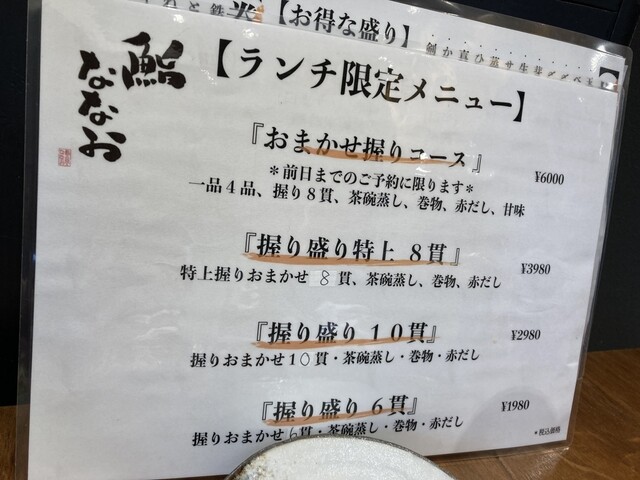 【お得な盛り】
鮨 ななお
【ランチ限定メニュー】
『おまかせ握りコース』 ¥6000
＊前日までのご予約に限ります＊
一品４品、握り８貫、茶碗蒸し、巻物、赤だし、甘味
『握り盛り特上 ８貫』 ¥3980
特上握りおまかせ 8 貫、茶碗蒸し、巻物、赤だし
『握り盛り１０貫』 ¥2980
握りおまかせ１０貫・茶碗蒸し・巻物・赤だし
『握り盛り６貫』 ¥1980
握りおまかせ６貫・茶碗蒸し・巻物・赤だし
＊税込価格